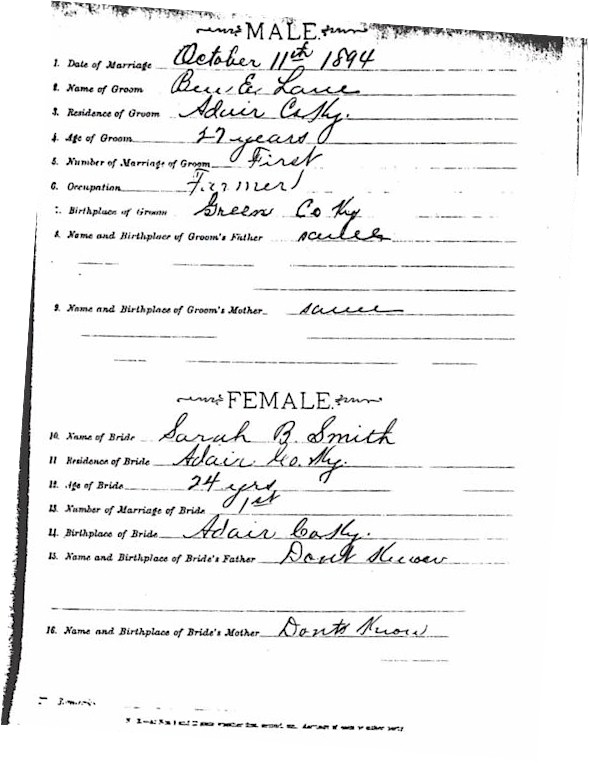 MALE.
1. Date of Marriage October 11th 1894
2. Name of Groom Ben E. Lane
3. Residence of Groom Adair Co Ky.
4. Age of Groom 27 years
5. Number of Marriage of Groom First
6. Occupation Farmer
7. Birthplace of Groom Green Co Ky
8. Name and Birthplace of Groom's Father same
9. Name and Birthplace of Groom's Mother same
FEMALE.
10. Name of Bride Sarah B. Smith
11 Residence of Bride Adair Co. Ky.
12. Age of Bride 24 yrs
13. Number of Marriage of Bride 1st
14. Birthplace of Bride Adair Co Ky.
15. Name and Birthplace of Bride's Father Dont Know
16. Name and Birthplace of Bride's Mother Dont Know
Remarks